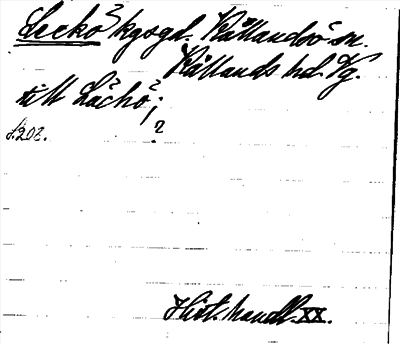 Lecko? kgsgd. Kållandsö sn.
Kållands hd. Vg.
till Läckö?;
?
s. 202.
Hist. handl. XX.